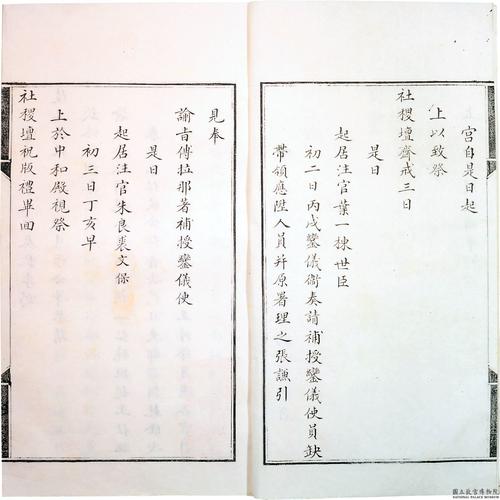 宮自是日起
上以致祭
社稷壇齋戒三日
是日
起居注官葉一棟世臣
初二日丙戌鑾儀衛奏請補授鑾儀使員缺
帶領應陞人員并原署理之張謙引
見奉
諭旨傅拉那著補授鑾儀使
是日
起居注官朱良裘文保
初三日丁亥早
上於中和殿視祭
社稷壇祝版禮畢回
國立故宮博物院
NATIONAL PALACE MUSEUM